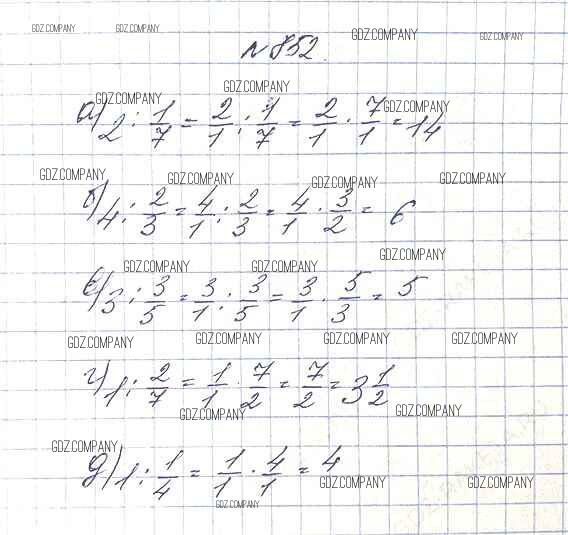 GDZ.COMPANY GDZ.COMPANY GDZ.COMPANY GDZ.COMPANY
№ 852.
GDZ.COMPANY
GDZ.COMPANY GDZ.COMPANY
а) 2 : 1/7 = 2/1 : 1/7 = 2/1 · 7/1 = 14
GDZ.COMPANY GDZ.COMPANY GDZ.COMPANY GDZ.COMPANY
б) 4 : 2/3 = 4/1 : 2/3 = 4/1 · 3/2 = 6
GDZ.COMPANY
GDZ.COMPANY GDZ.COMPANY
в) 3 : 3/5 = 3/1 : 3/5 = 3/1 · 5/3 = 5
GDZ.COMPANY GDZ.COMPANY GDZ.COMPANY GDZ.COMPANY
г) 1 : 2/7 = 1/1 · 7/2 = 7/2 = 3 1/2
GDZ.COMPANY GDZ.COMPANY
GDZ.COMPANY
д) 1 : 1/4 = 1/1 · 4/1 = 4
GDZ.COMPANY GDZ.COMPANY
GDZ.COMPANY